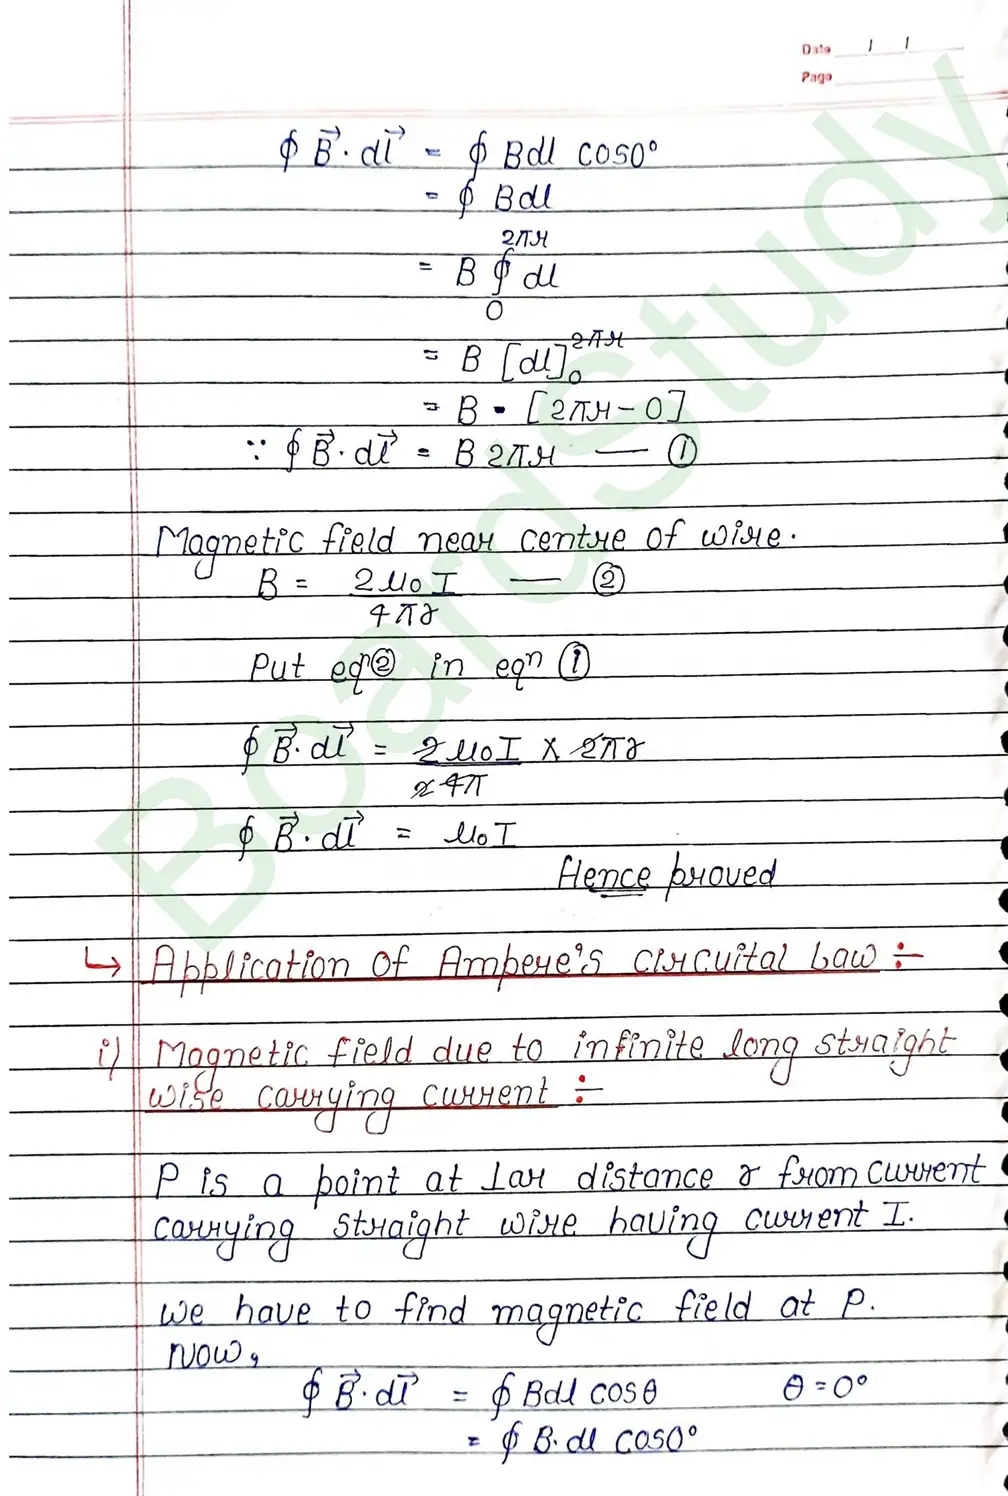 Date / /
Page
∮ B⃗ · dl⃗ = ∮ Bdl cos0°
= ∮ Bdl
= B ∮₀^{2πr} dl
= B [dl]₀^{2πr}
= B · [2πr - 0]
∵ ∮ B⃗ · dl⃗ = B 2πr — ①
Magnetic field near centre of wire.
B = 2μ₀I / 4πr — ②
Put eqⁿ② in eqⁿ ①
∮ B⃗ · dl⃗ = 2μ₀I / r 4π × 2πr
∮ B⃗ · dl⃗ = μ₀I
Hence proved
↳ Application of Ampere's circuital Law ÷
i) Magnetic field due to infinite long straight
wire carrying current ÷
P is a point at ⊥ar distance r from current
carrying straight wire having current I.
We have to find magnetic field at P.
Now,
∮ B⃗ · dl⃗ = ∮ Bdl cosθ θ = 0°
= ∮ B·dl cos0°
BoardStudy